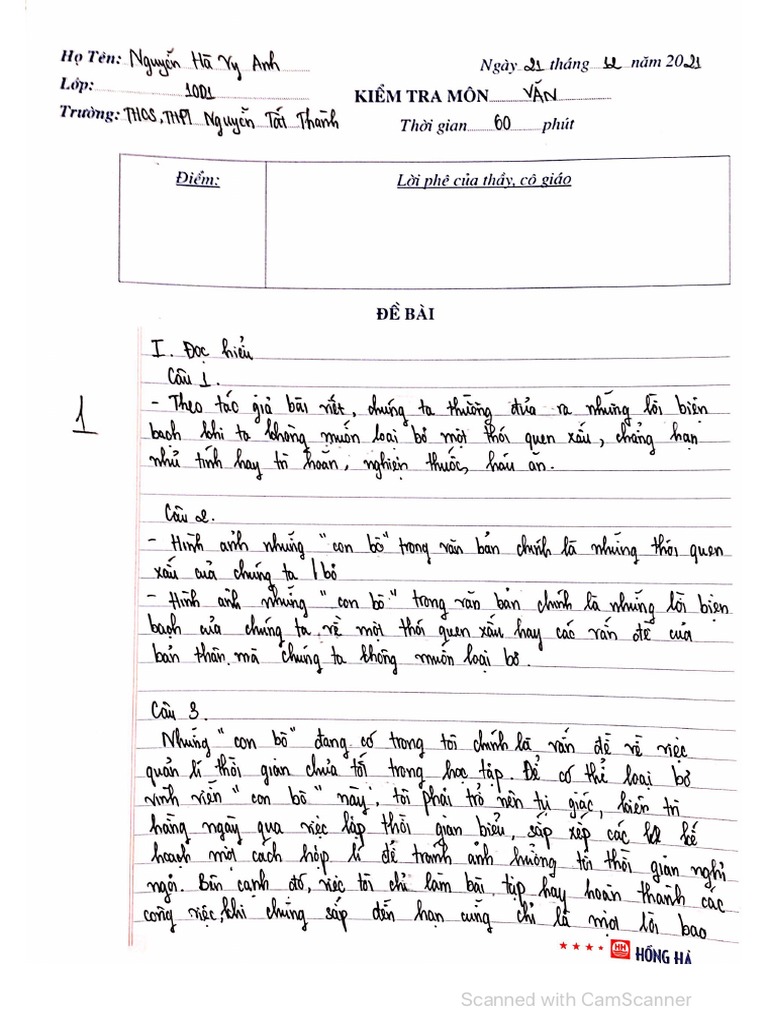 Họ Tên: Nguyễn Hà Vy Anh
Ngày 21 tháng 12 năm 2021
Lớp: 10D1
KIỂM TRA MÔN VĂN
Trường: THCS, THPT Nguyễn Tất Thành
Thời gian 60 phút
Điểm:
Lời phê của thầy, cô giáo
ĐỀ BÀI
I. Đọc hiểu
Câu 1.
1
- Theo tác giả bài viết, chúng ta thường đưa ra những lời biện
bạch khi ta không muốn loại bỏ một thói quen xấu, chẳng hạn
như tính hay trì hoãn, nghiện thuốc, háu ăn.
Câu 2.
- Hình ảnh những "con bò" trong văn bản chính là những thói quen
xấu của chúng ta / bỏ
- Hình ảnh những "con bò" trong văn bản chính là những lời biện
bạch của chúng ta về một thói quen xấu hay các vấn đề của
bản thân mà chúng ta không muốn loại bỏ.
Câu 3.
Những "con bò" đang có trong tôi chính là vấn đề về việc
quản lí thời gian chưa tốt trong học tập. Để có thể loại bỏ
vĩnh viễn "con bò" này, tôi phải trở nên tự giác, kiên trì
hằng ngày qua việc lập thời gian biểu, sắp xếp các kế
hoạch một cách hợp lí để tránh ảnh hưởng tới thời gian nghỉ
ngơi. Bên cạnh đó, việc tôi chỉ làm bài tập hay hoàn thành các
công việc khi chúng sắp đến hạn cũng chỉ là một lời bao
HH HỒNG HÀ
Scanned with CamScanner